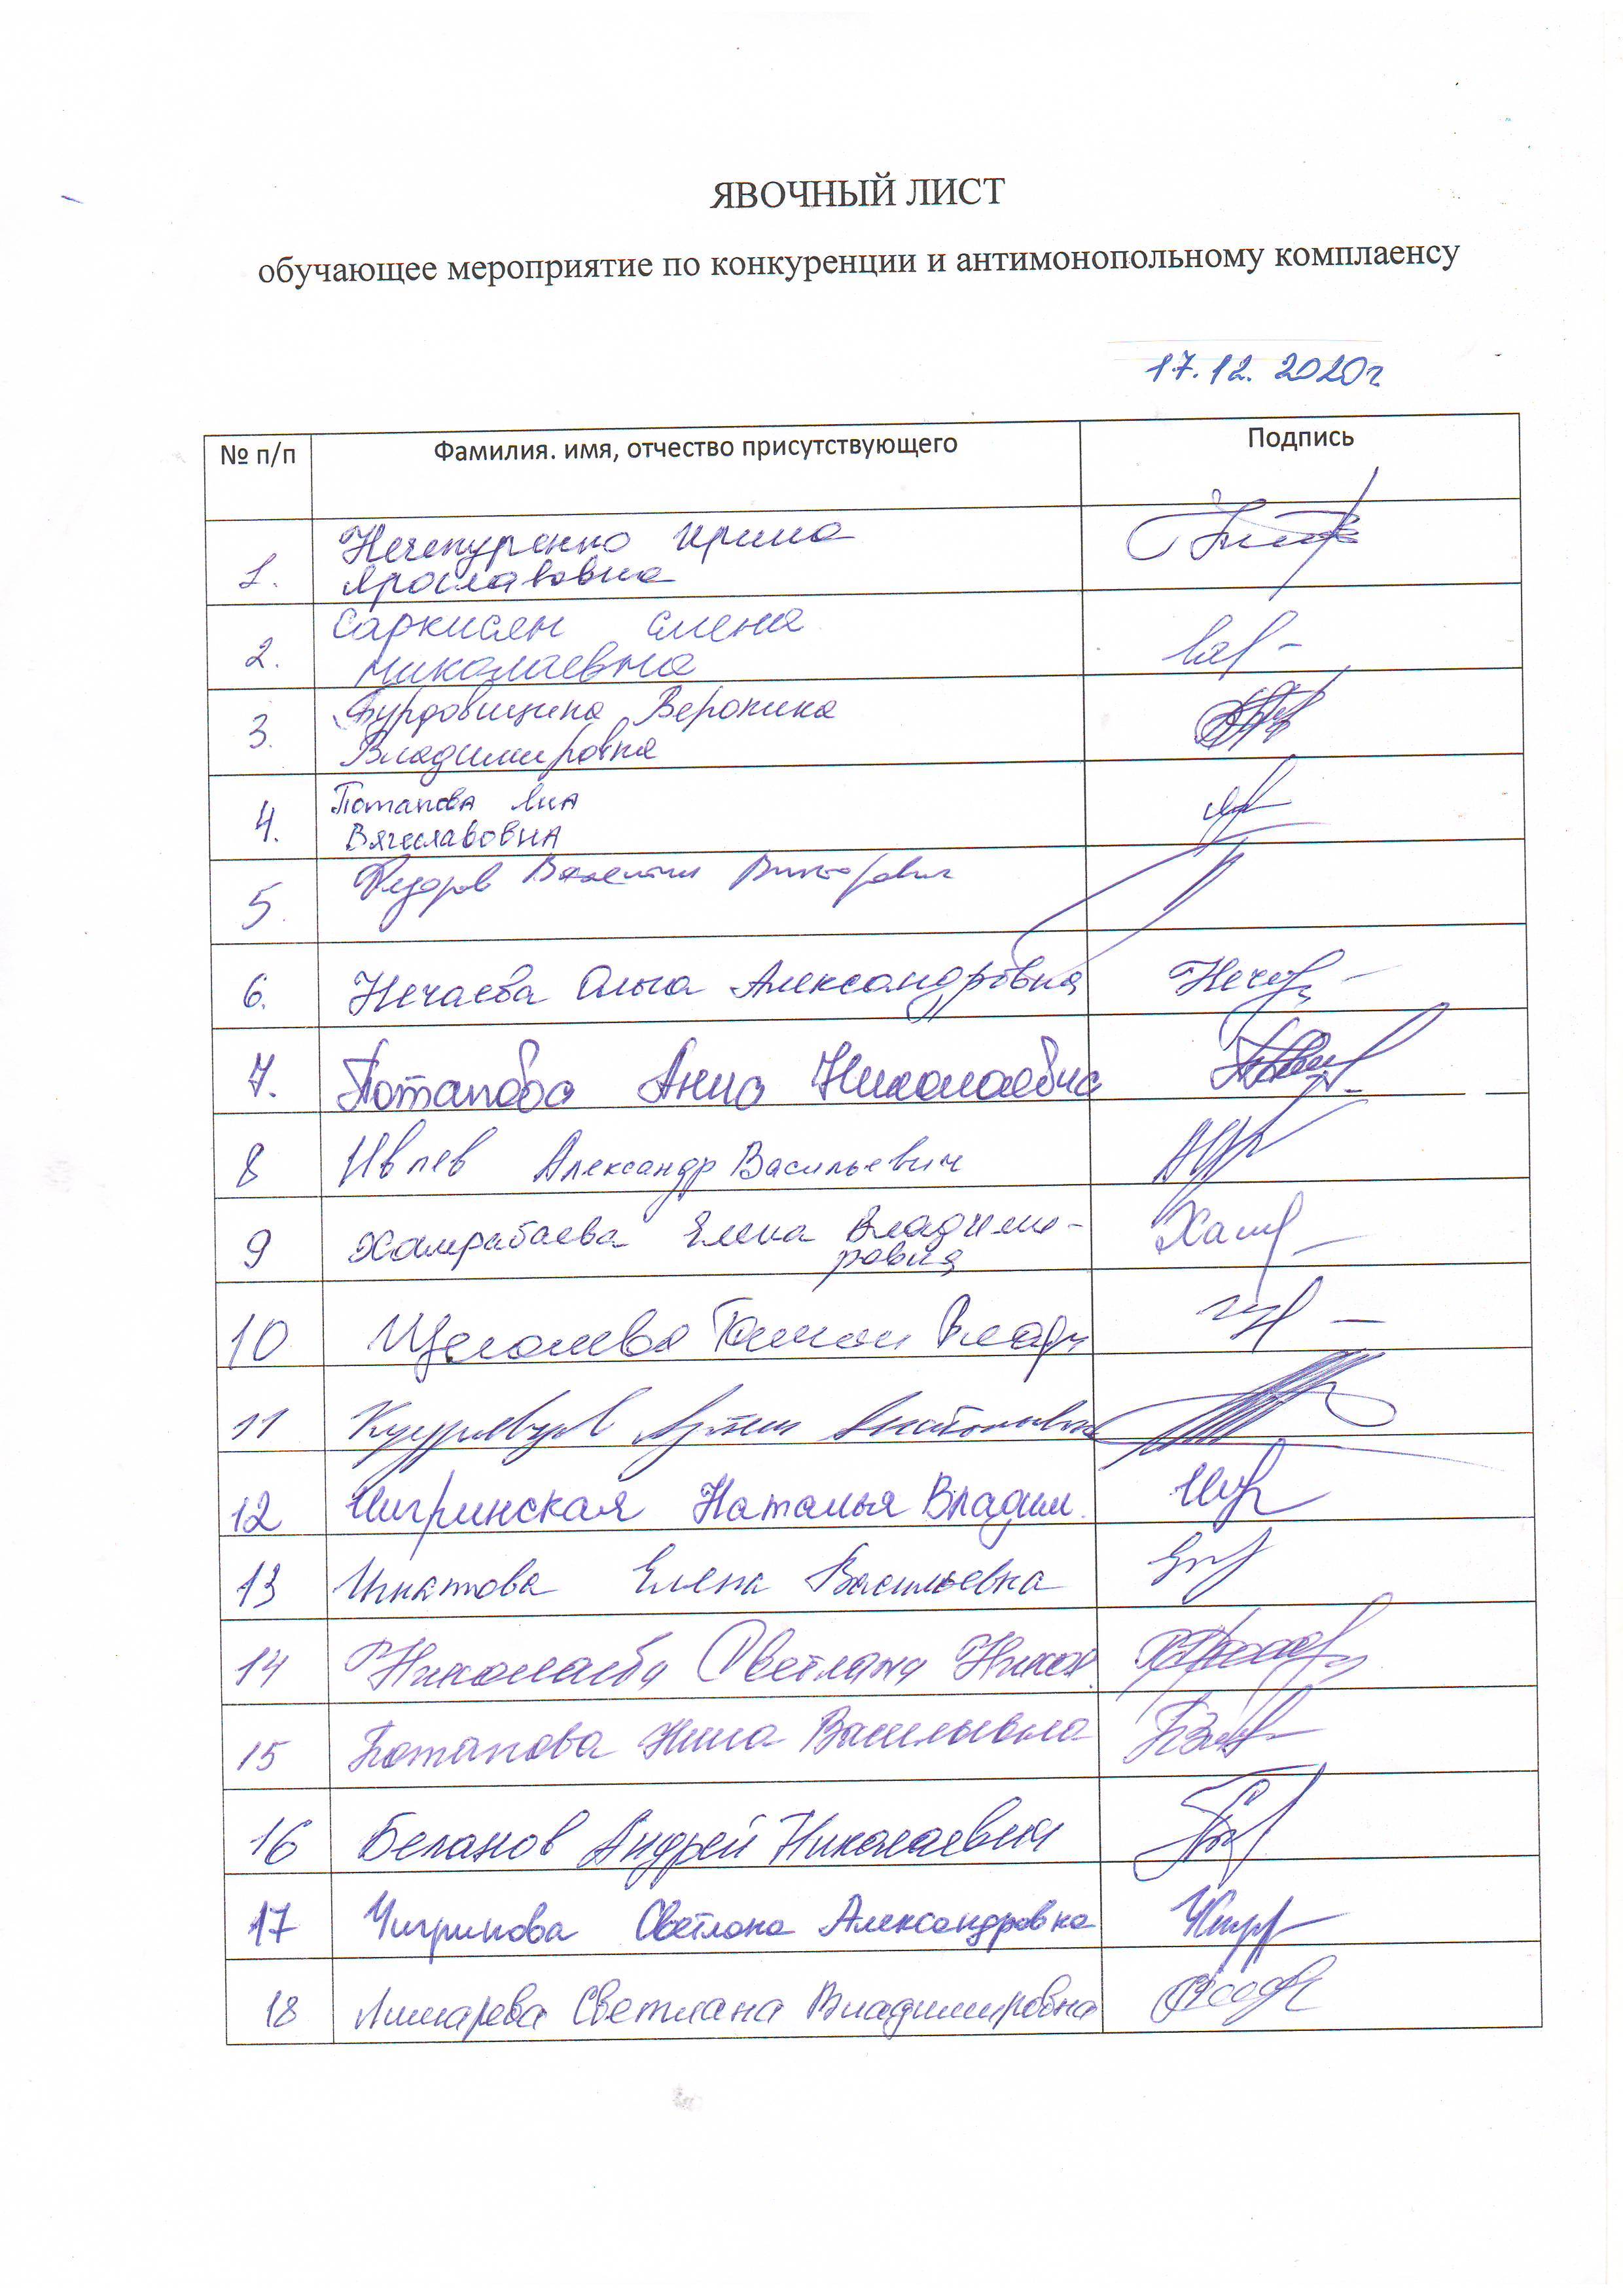 ЯВОЧНЫЙ ЛИСТ
обучающее мероприятие по конкуренции и антимонопольному комплаенсу
17.12.2020г
№ п/п Фамилия. имя, отчество присутствующего Подпись
1. Нечепуренко Ирина
Ярославовна
2. Саркисян Елена
Николаевна
3. Бурдовицина Вероника
Владимировна
4. Потапова Яна
Вячеславовна
5. Федоров Валентин Викторович
6. Нечаева Ольга Александровна
7. Потапова Анна Николаевна
8 Ивлев Александр Васильевич
9 Хамрабаева Елена Владими-
ровна
10 Щеголева
11 Анатольевич
12 Шигринская Наталья Владим.
13 Игнатова Елена Васильевна
14 Николаева Светлана Никол.
15 Потапова Нина Васильевна
16 Беланов Андрей Николаевич
17 Чигринова Светлана Александровна
18 Лимарева Светлана Владимировна